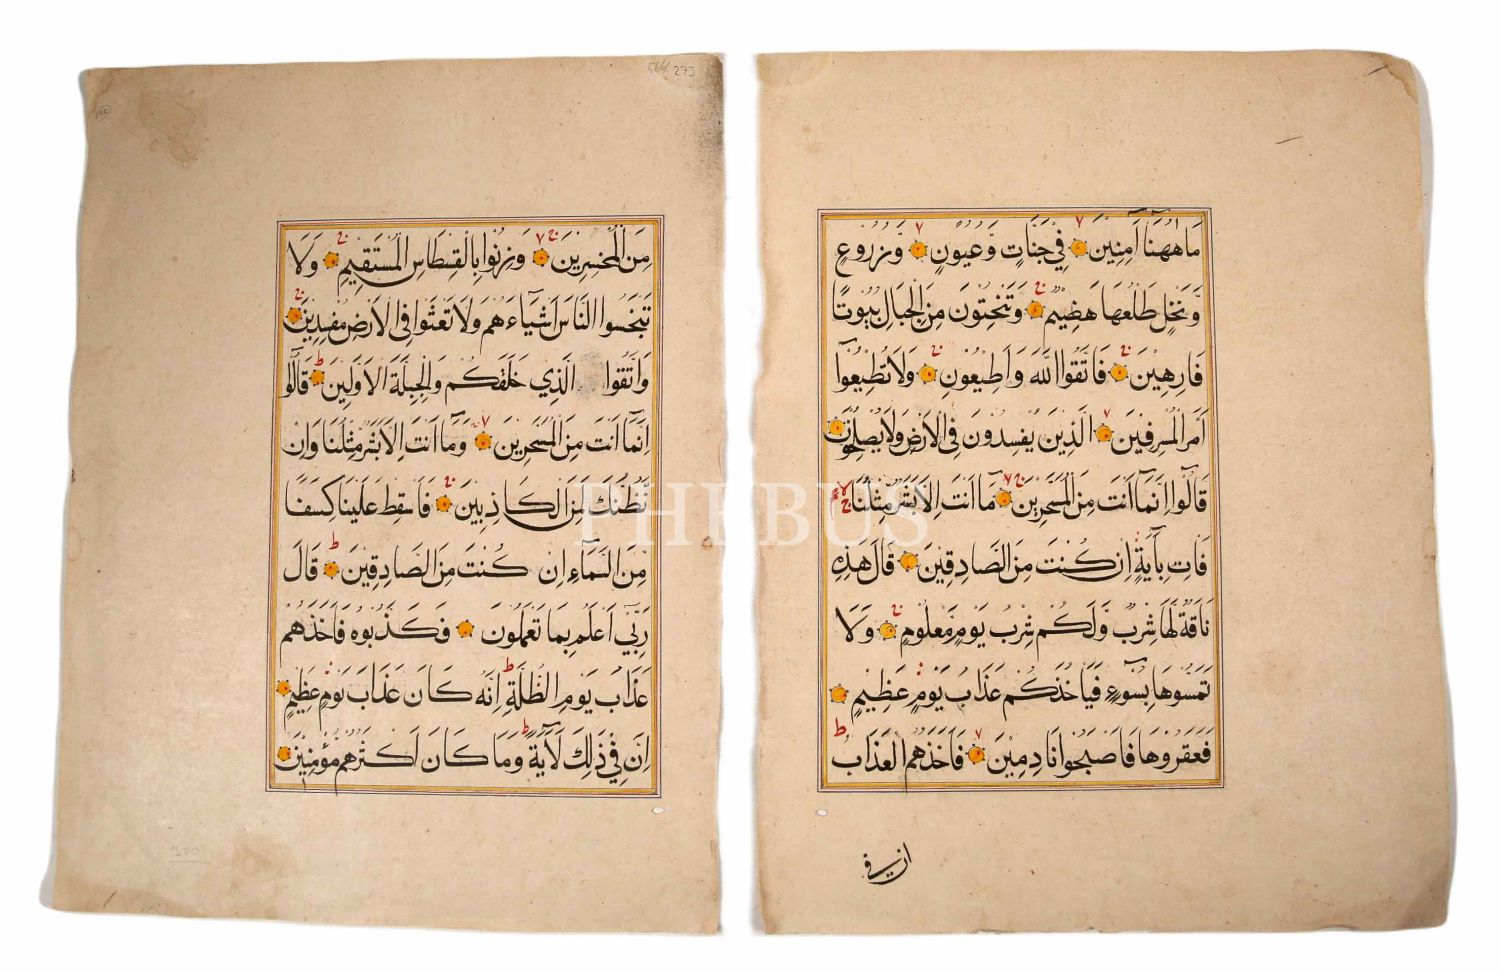 مَا هٰهُنَا آمِنِينَ فِي جَنَّاتٍ وَّعُيُونٍ وَّزُرُوعٍ
وَّنَخْلٍ طَلْعُهَا هَضِيمٌ وَتَنْحِتُونَ مِنَ الْجِبَالِ بُيُوتًا
فَارِهِينَ فَاتَّقُوا اللَّهَ وَأَطِيعُونِ وَلَا تُطِيعُوٓا
اَمْرَ الْمُسْرِفِينَ الَّذِينَ يُفْسِدُونَ فِي الْاَرْضِ وَلَا يُصْلِحُونَ
قَالُوٓا اِنَّمَآ اَنْتَ مِنَ الْمُسَحَّرِينَ مَآ اَنْتَ اِلَّا بَشَرٌ مِّثْلُنَا
فَاْتِ بِآيَةٍ اِنْ كُنْتَ مِنَ الصَّادِقِينَ قَالَ هٰذِهِ
نَاقَةٌ لَّهَا شِرْبٌ وَّلَكُمْ شِرْبُ يَوْمٍ مَّعْلُومٍ وَلَا
تَمَسُّوهَا بِسُوٓءٍ فَيَاْخُذَكُمْ عَذَابُ يَوْمٍ عَظِيمٍ
فَعَقَرُوهَا فَاَصْبَحُوا نَادِمِينَ فَاَخَذَهُمُ الْعَذَابُ
ان في
564 273
مِنَ الْمُخْسِرِينَ وَزِنُوا بِالْقِسْطَاسِ الْمُسْتَقِيمِ وَلَا
تَبْخَسُوا النَّاسَ اَشْيَآءَهُمْ وَلَا تَعْثَوْا فِي الْاَرْضِ مُفْسِدِينَ
وَاتَّقُوا الَّذِي خَلَقَكُمْ وَالْجِبِلَّةَ الْاَوَّلِينَ قَالُوٓا
اِنَّمَآ اَنْتَ مِنَ الْمُسَحَّرِينَ وَمَآ اَنْتَ اِلَّا بَشَرٌ مِّثْلُنَا وَاِنْ
نَّظُنُّكَ لَمِنَ الْكَاذِبِينَ فَاَسْقِطْ عَلَيْنَا كِسَفًا
مِّنَ السَّمَآءِ اِنْ كُنْتَ مِنَ الصَّادِقِينَ قَالَ
رَبِّيٓ اَعْلَمُ بِمَا تَعْمَلُونَ فَكَذَّبُوهُ فَاَخَذَهُمْ
عَذَابُ يَوْمِ الظُّلَّةِ اِنَّهُ كَانَ عَذَابَ يَوْمٍ عَظِيمٍ
اِنَّ فِي ذٰلِكَ لَآيَةً وَمَا كَانَ اَكْثَرُهُمْ مُّؤْمِنِينَ
320
PHEBUS